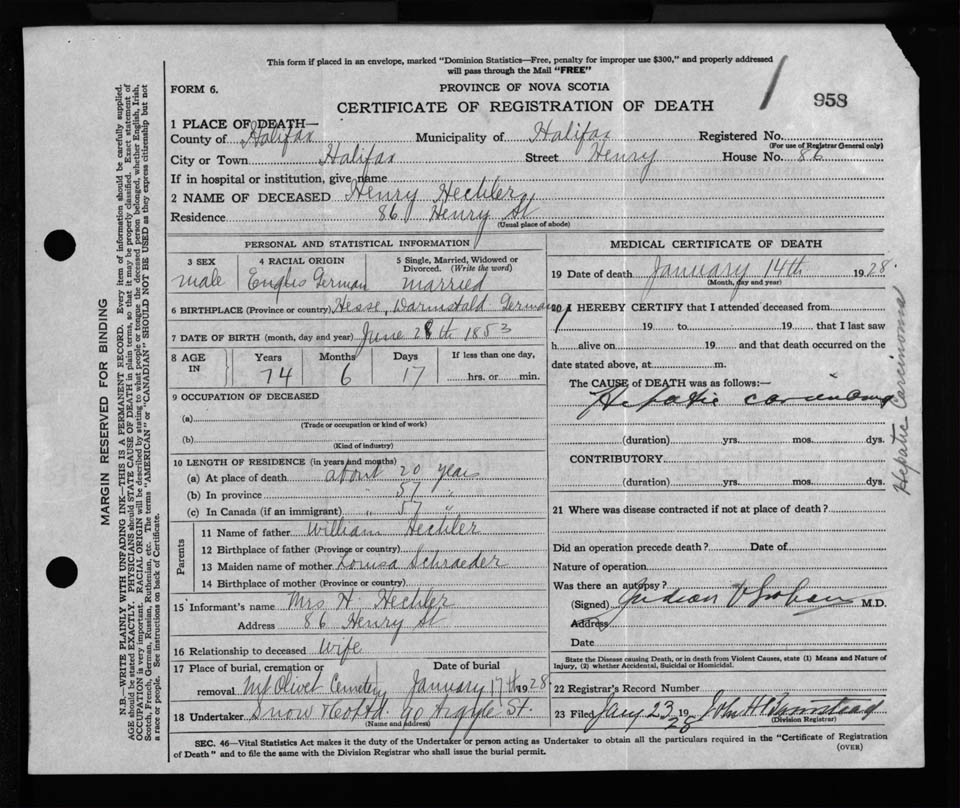 This form if placed in an envelope, marked "Dominion Statistics—Free, penalty for improper use $300," and properly addressed
will pass through the Mail "FREE"
FORM 6.
PROVINCE OF NOVA SCOTIA
958
CERTIFICATE OF REGISTRATION OF DEATH
1 PLACE OF DEATH—
County of Halifax Municipality of Halifax Registered No.
(For use of Registrar General only)
City or Town Halifax Street Henry House No. 86
If in hospital or institution, give name
2 NAME OF DECEASED Henry Hechler
Residence 86 Henry St
(Usual place of abode)
PERSONAL AND STATISTICAL INFORMATION
3 SEX 4 RACIAL ORIGIN 5 Single, Married, Widowed or
Divorced. (Write the word)
male German married
6 BIRTHPLACE (Province or country) Hesse, Darmstald German
7 DATE OF BIRTH (month, day and year) June 28th 1853
8 AGE IN Years Months Days If less than one day,
74 6 17 hrs. or min.
9 OCCUPATION OF DECEASED
(a)
(Trade or occupation or kind of work)
(b)
(Kind of industry)
10 LENGTH OF RESIDENCE (in years and months)
(a) At place of death about 20 years
(b) In province " 57 "
(c) In Canada (if an immigrant) " 57 "
Parents
11 Name of father William Hechler
12 Birthplace of father (Province or country)
13 Maiden name of mother Louisa Schraeder
14 Birthplace of mother (Province or country)
15 Informant's name Mrs H. Hechler
Address 86 Henry St
16 Relationship to deceased Wife
17 Place of burial, cremation or Date of burial
removal Mt Olivet Cemetery January 17th 1928
18 Undertaker Snow & Co Ltd 90 Argyle St.
(Name and Address)
MEDICAL CERTIFICATE OF DEATH
19 Date of death January 14th 1928.
(Month, day and year)
20 I HEREBY CERTIFY that I attended deceased from
19 to 19 that I last saw
h alive on 19 and that death occurred on the
date stated above, at m.
The CAUSE of DEATH was as follows:—
Hepatic carcinoma
(duration) yrs. mos. dys.
CONTRIBUTORY
(duration) yrs. mos. dys.
21 Where was disease contracted if not at place of death?
Did an operation precede death? Date of
Nature of operation
Was there an autopsy?
(Signed) M.D.
Address
Date
State the Disease causing Death, or in death from Violent Causes, state (1) Means and Nature of
Injury, (2) whether Accidental, Suicidal or Homicidal.
22 Registrar's Record Number
23 Filed Jany 23 1928 John H
(Division Registrar)
Hepatic Carcinoma
SEC. 46—Vital Statistics Act makes it the duty of the Undertaker or person acting as Undertaker to obtain all the particulars required in the "Certificate of Registration
of Death" and to file the same with the Division Registrar who shall issue the burial permit.
(OVER)
MARGIN RESERVED FOR BINDING
N.B.—WRITE PLAINLY WITH UNFADING INK—THIS IS A PERMANENT RECORD. Every item of information should be carefully supplied.
AGE should be stated EXACTLY. PHYSICIANS should STATE CAUSE OF DEATH in plain terms, so that it may be properly classified. Exact statement of
OCCUPATION is very important. RACIAL ORIGIN will be described by stating to what people or tongue the deceased person belonged, whether English, Irish,
Scotch, French, German, Russian, Ruthenian, etc. The terms "AMERICAN" or "CANADIAN" SHOULD NOT BE USED as they express citizenship but not
a race or people. See instructions on back of Certificate.